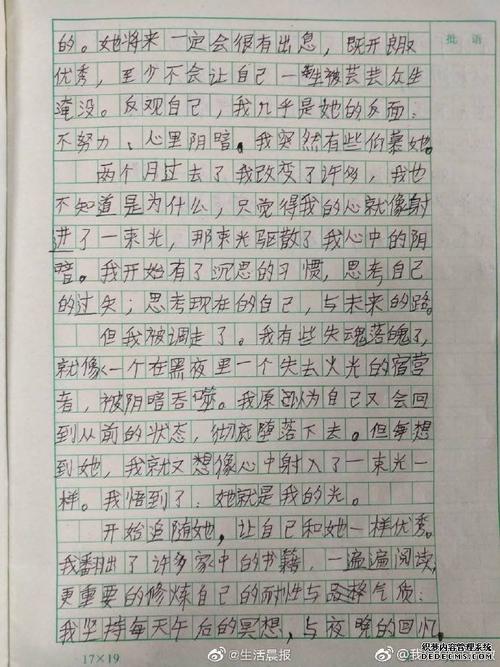 批 语
的。她将来一定会很有出息，既开朗又
优秀，至少不会让自己一生被芸芸众生
淹没。反观自己，我几乎是她的反面：
不努力、心里阴暗。我突然有些仰慕她。
两个月过去了我改变了许多，我也
不知道是为什么，只觉得我的心就像射
进了一束光，那束光驱散了我心中的阴
暗。我开始有了沉思的习惯，思考自己
的过失；思考现在的自己，与未来的路。
但我被调走了。我有些失魂落魄了，
就像一个在黑夜里一个失去火光的宿营
者，被阴暗吞噬。我原以为自己又会回
到从前的状态，彻底堕落下去。但每想
到她，我就又想像心中射入了一束光一
样。我悟到了：她就是我的光。
开始追随她，让自己和她一样优秀。
我翻出了许多家中的书籍，一遍遍阅读，
更重要的修炼自己的耐性与 气质：
我坚持每天午后的冥想，与夜晚的回忆。
17×19
@生活晨报
@我
本文转自